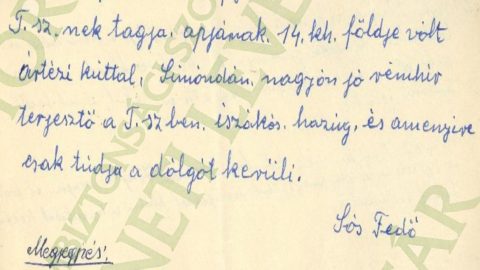 T. sz. nek tagja. apjának. 14. kh. földje vólt
ártézi kúttal, Simóndán, nagyón jó rémhir
terjesztő a T. szben. iszákós. hazúg, és amenyire
csak túdja a dólgót kerüli.
Sós Fedő
Megjegyzés: